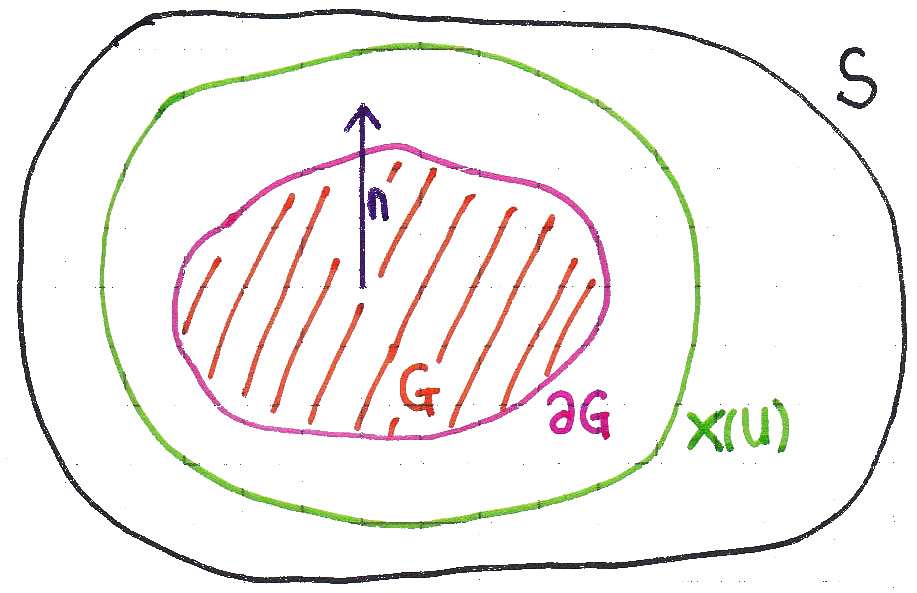 S
n
G
∂G
X(U)